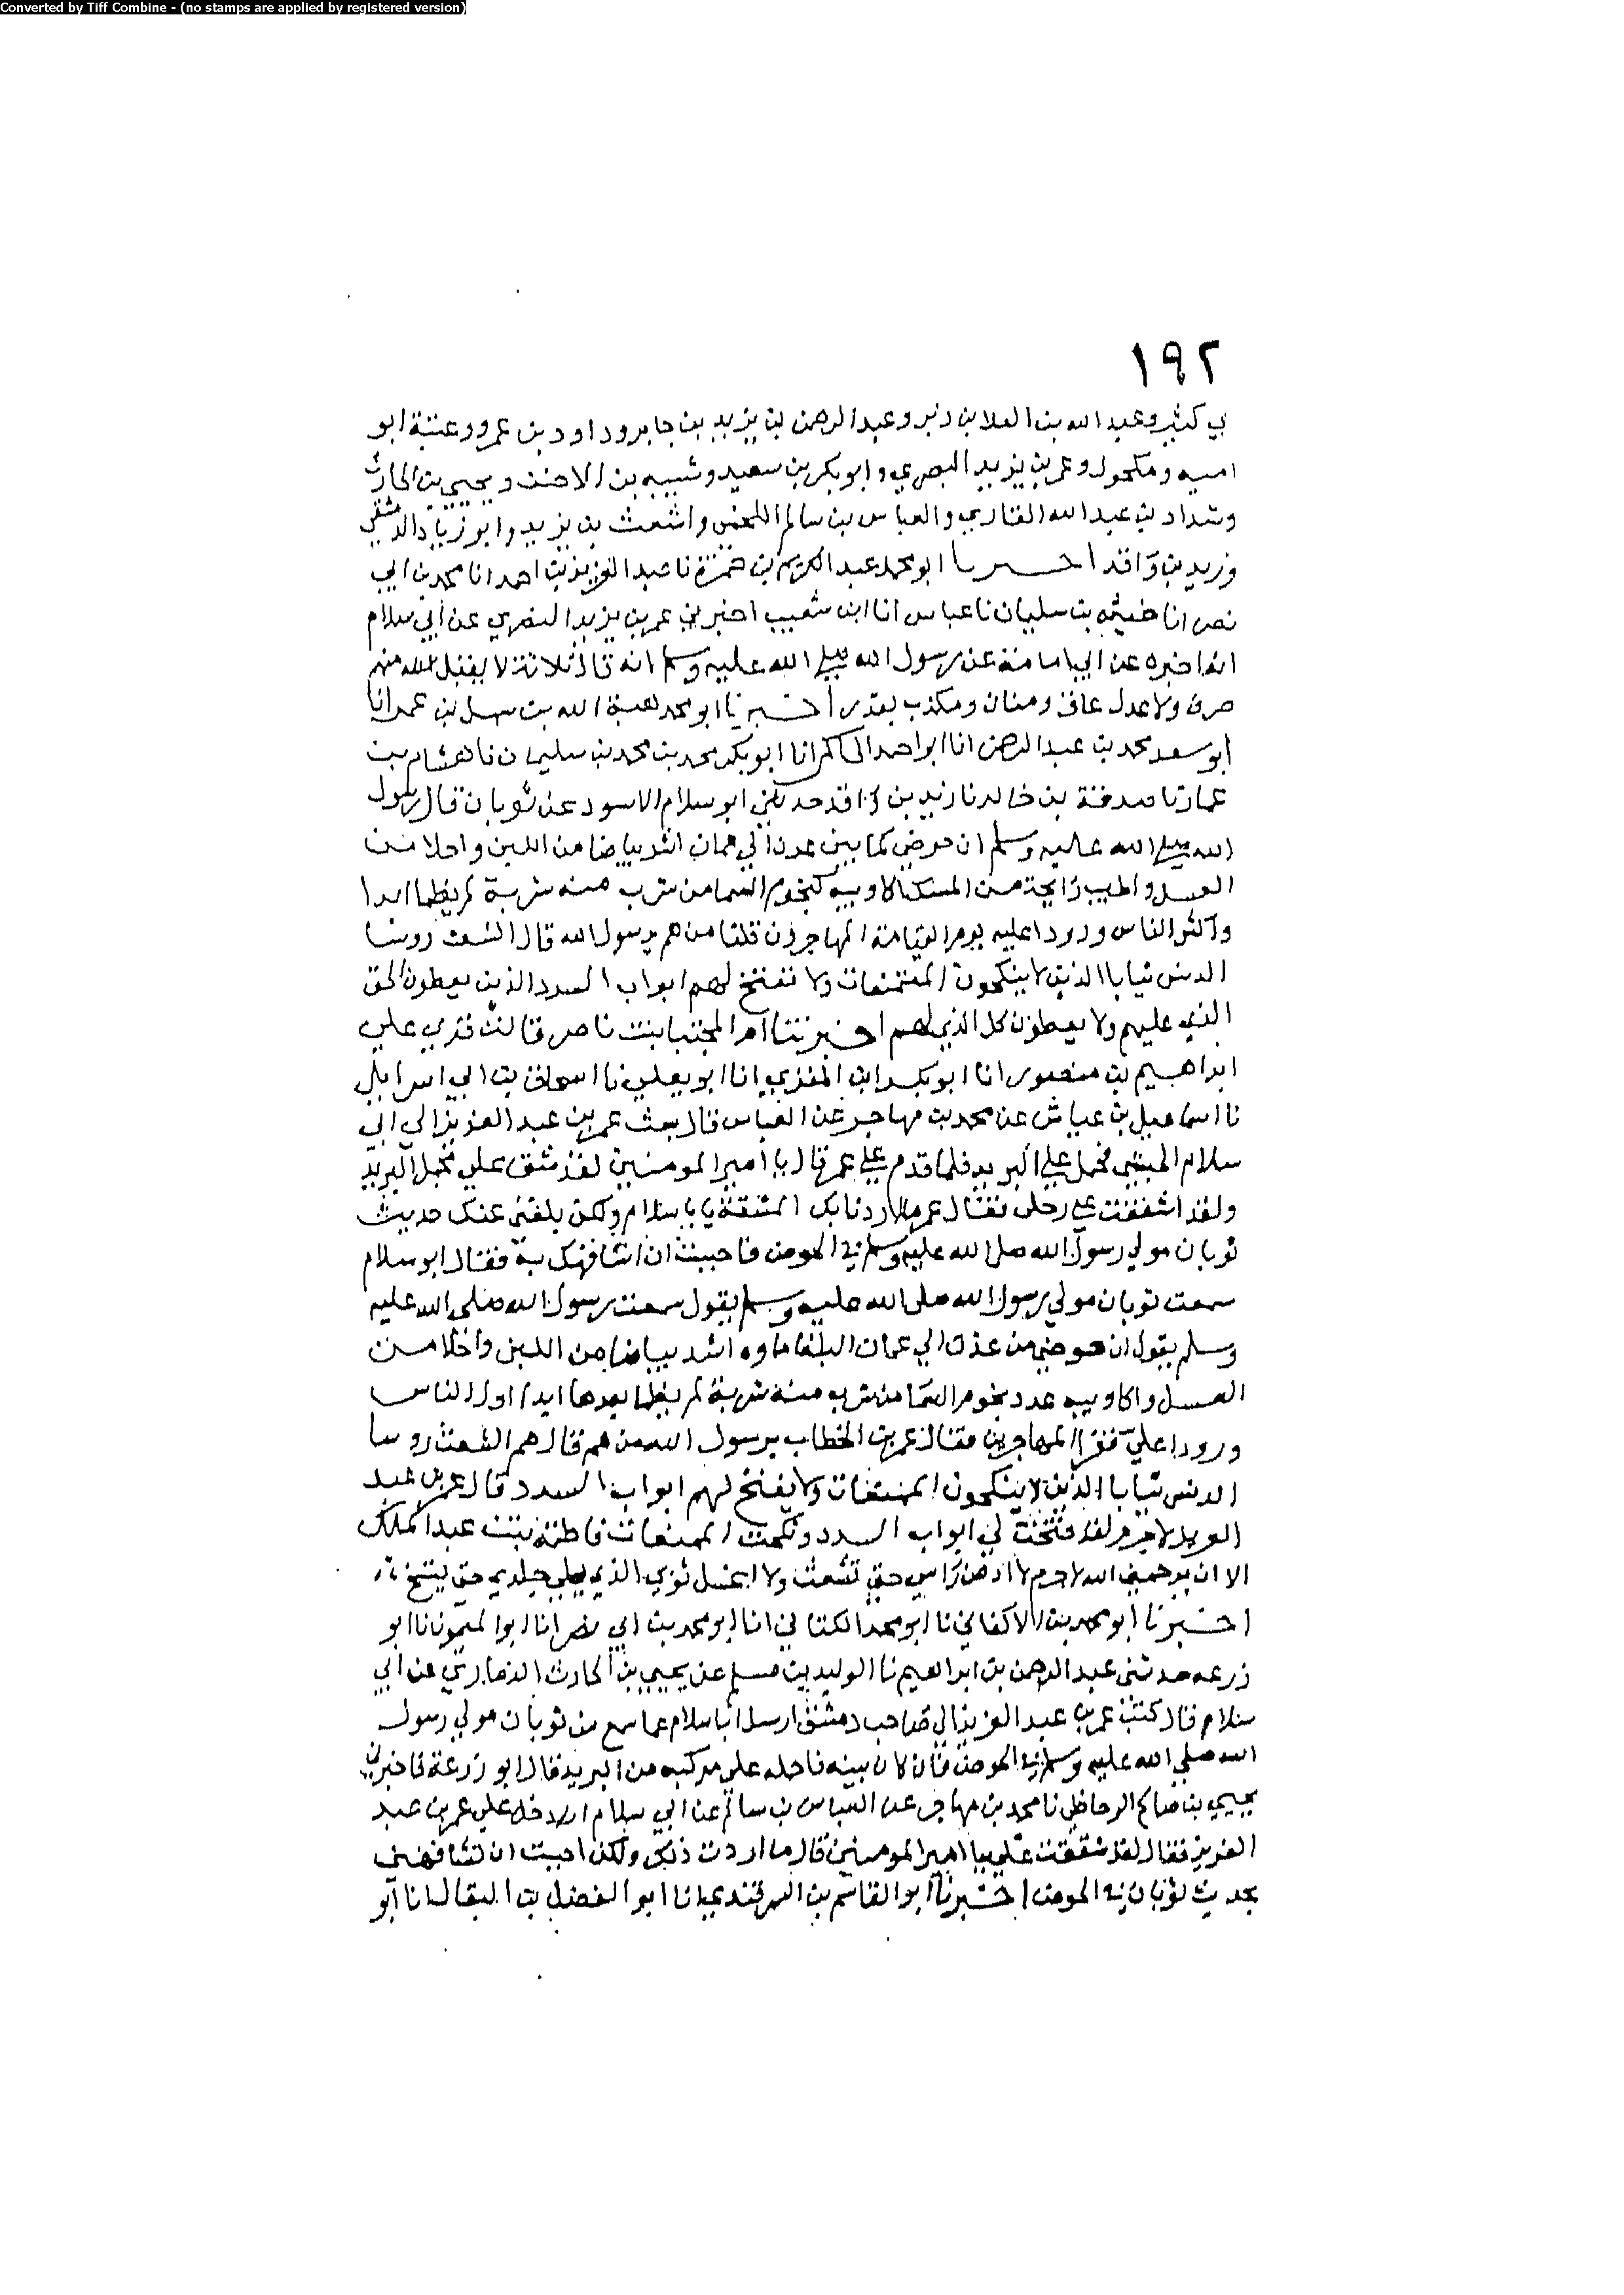 Converted by Tiff Combine - (no stamps are applied by registered version)
١٩٢
بي كثير وعبد الله بن العلا بن زبر وعبد الرحمن بن يزيد بن جابر وداود بن عمرو وعتبة ابو
اميه ومكحول وعمر بن يزيد البصري وابو بكر بن سعيد وشبيه بن الاحنف ويحيى بن الحارث
وشداد بن عبد الله القاري والعباس بن سالم اللخمي واشعث بن يزيد وابو زياد الدمشقي
وزيد بن واقد اخبرنا ابو محمد عبد الكريم بن حمزة نا عبد العزيز بن احمد انا محمد بن ابي
نصر انا خيثمه بن سليمان نا عباس انا ابن شعيب اخبرني عمر بن يزيد النصري عن ابي سلام
انه اخبره عن ابي امامة عن رسول الله صلى الله عليه وسلم انه قال ثلاثة لا يقبل الله منهم
صرف ولا عدل عاق ومنان ومكذب بقدر اخبرنا ابو محمد هبة الله بن سهل بن عمر انا
ابو سعد محمد بن عبد الرحمن انا ابو احمد الحاكم انا ابو بكر محمد بن محمد بن سليمان نا هشام بن
عمار نا صدقة بن خالد نا زيد بن واقد حدثني ابو سلام الاسود عن ثوبان قال رسول
الله صلى الله عليه وسلم ان حوضي كما بين عدن الي عمان اشد بياضا من اللبن واحلا من
العسل واطيب رايحة من المسك اكاويبه كنجوم السما من شرب منه شربة لم يظما ابدا
واكثر الناس ورودا عليه يوم القيامة المهاجرون قلنا من هم يرسول الله قال الشعث روسا
الدنس ثيابا الذين لا ينكحون المتنعمات ولا تفتح لهم ابواب السدد الذين يعطون الحق
الذي عليهم ولا يعطون كل الذي لهم اخبرتنا ام المجتبا بنت ناصر قالت قري علي
ابراهيم بن منصور انا ابو بكر ابن المقري انا ابو يعلي نا اسحاق بن ابي اسرايل
نا اسماعيل بن عياش عن محمد بن مهاجر عن العباس قال بعث عمر بن عبد العزيز الي ابي
سلام الحبشي فحمل علي البريد فلما قدم علي عمر قال يا امير المومنين لقد شق علي محمل البريد
ولقد اشفقت علي رحلي فقال عمر ما اردنا بك المشقة يا با سلام ولكن بلغني عنك حديث
ثوبان مولي رسول الله صلى الله عليه وسلم في الحوض فاحببت ان اشافهك به فقال ابو سلام
سمعت ثوبان مولي رسول الله صلى الله عليه وسلم يقول سمعت رسول الله صلى الله عليه
وسلم يقول ان حوضي من عدن الي عمان البلقا ماوه اشد بياضا من اللبن واحلا من
العسل واكاويبه عدد نجوم السما من شرب منه شربة لم يظما بعدها ابدا اول الناس
ورودا علي فقرا المهاجرين فقال عمر بن الخطاب يرسول الله من هم قال هم الشعث روسا
الدنس ثيابا الذين لا ينكحون المنتعمات ولا يفتح لهم ابواب السدد قال عمر بن عبد
العزيز لا جرم لقد فتحت لي ابواب السدد ونكحت المنعمات فاطمة بنت عبد الملك
الا ان يرحمني الله لا جرم لا ادهن راسي حتي تشعث ولا اغسل ثوبي الذي يلي جلدي حتي يتسخ
اخبرنا ابو محمد بن الاكفاني نا ابو محمد الكتاني انا ابو محمد بن ابي نصر انا ابو الميمون نا ابو
زرعه حدثني عبد الرحمن بن ابراهيم نا الوليد بن مسلم عن يحيي بن الحارث الذماري عن ابي
سلام قال كتب عمر بن عبد العزيز الي صاحب دمشق ارسل ابا سلام عما سمع من ثوبان مولي رسول
الله صلي الله عليه وسلم في الحوض فان كان بينه فاحله علي مركبه من البريد قال ابو زرعة فاخبرني
يحيي بن صالح الوحاظي نا محمد بن مهاجر عن العباس بن سالم عن ابي سلام انه دخل علي عمر بن عبد
العزيز فقال لقد شققت علي يا امير المومنين قال ما اردت ذلك ولكن احببت ان تشافهني
بحديث ثوبان في الحوض اخبرنا ابو القاسم بن السمرقندي انا ابو الفضل بن البقال انا ابو